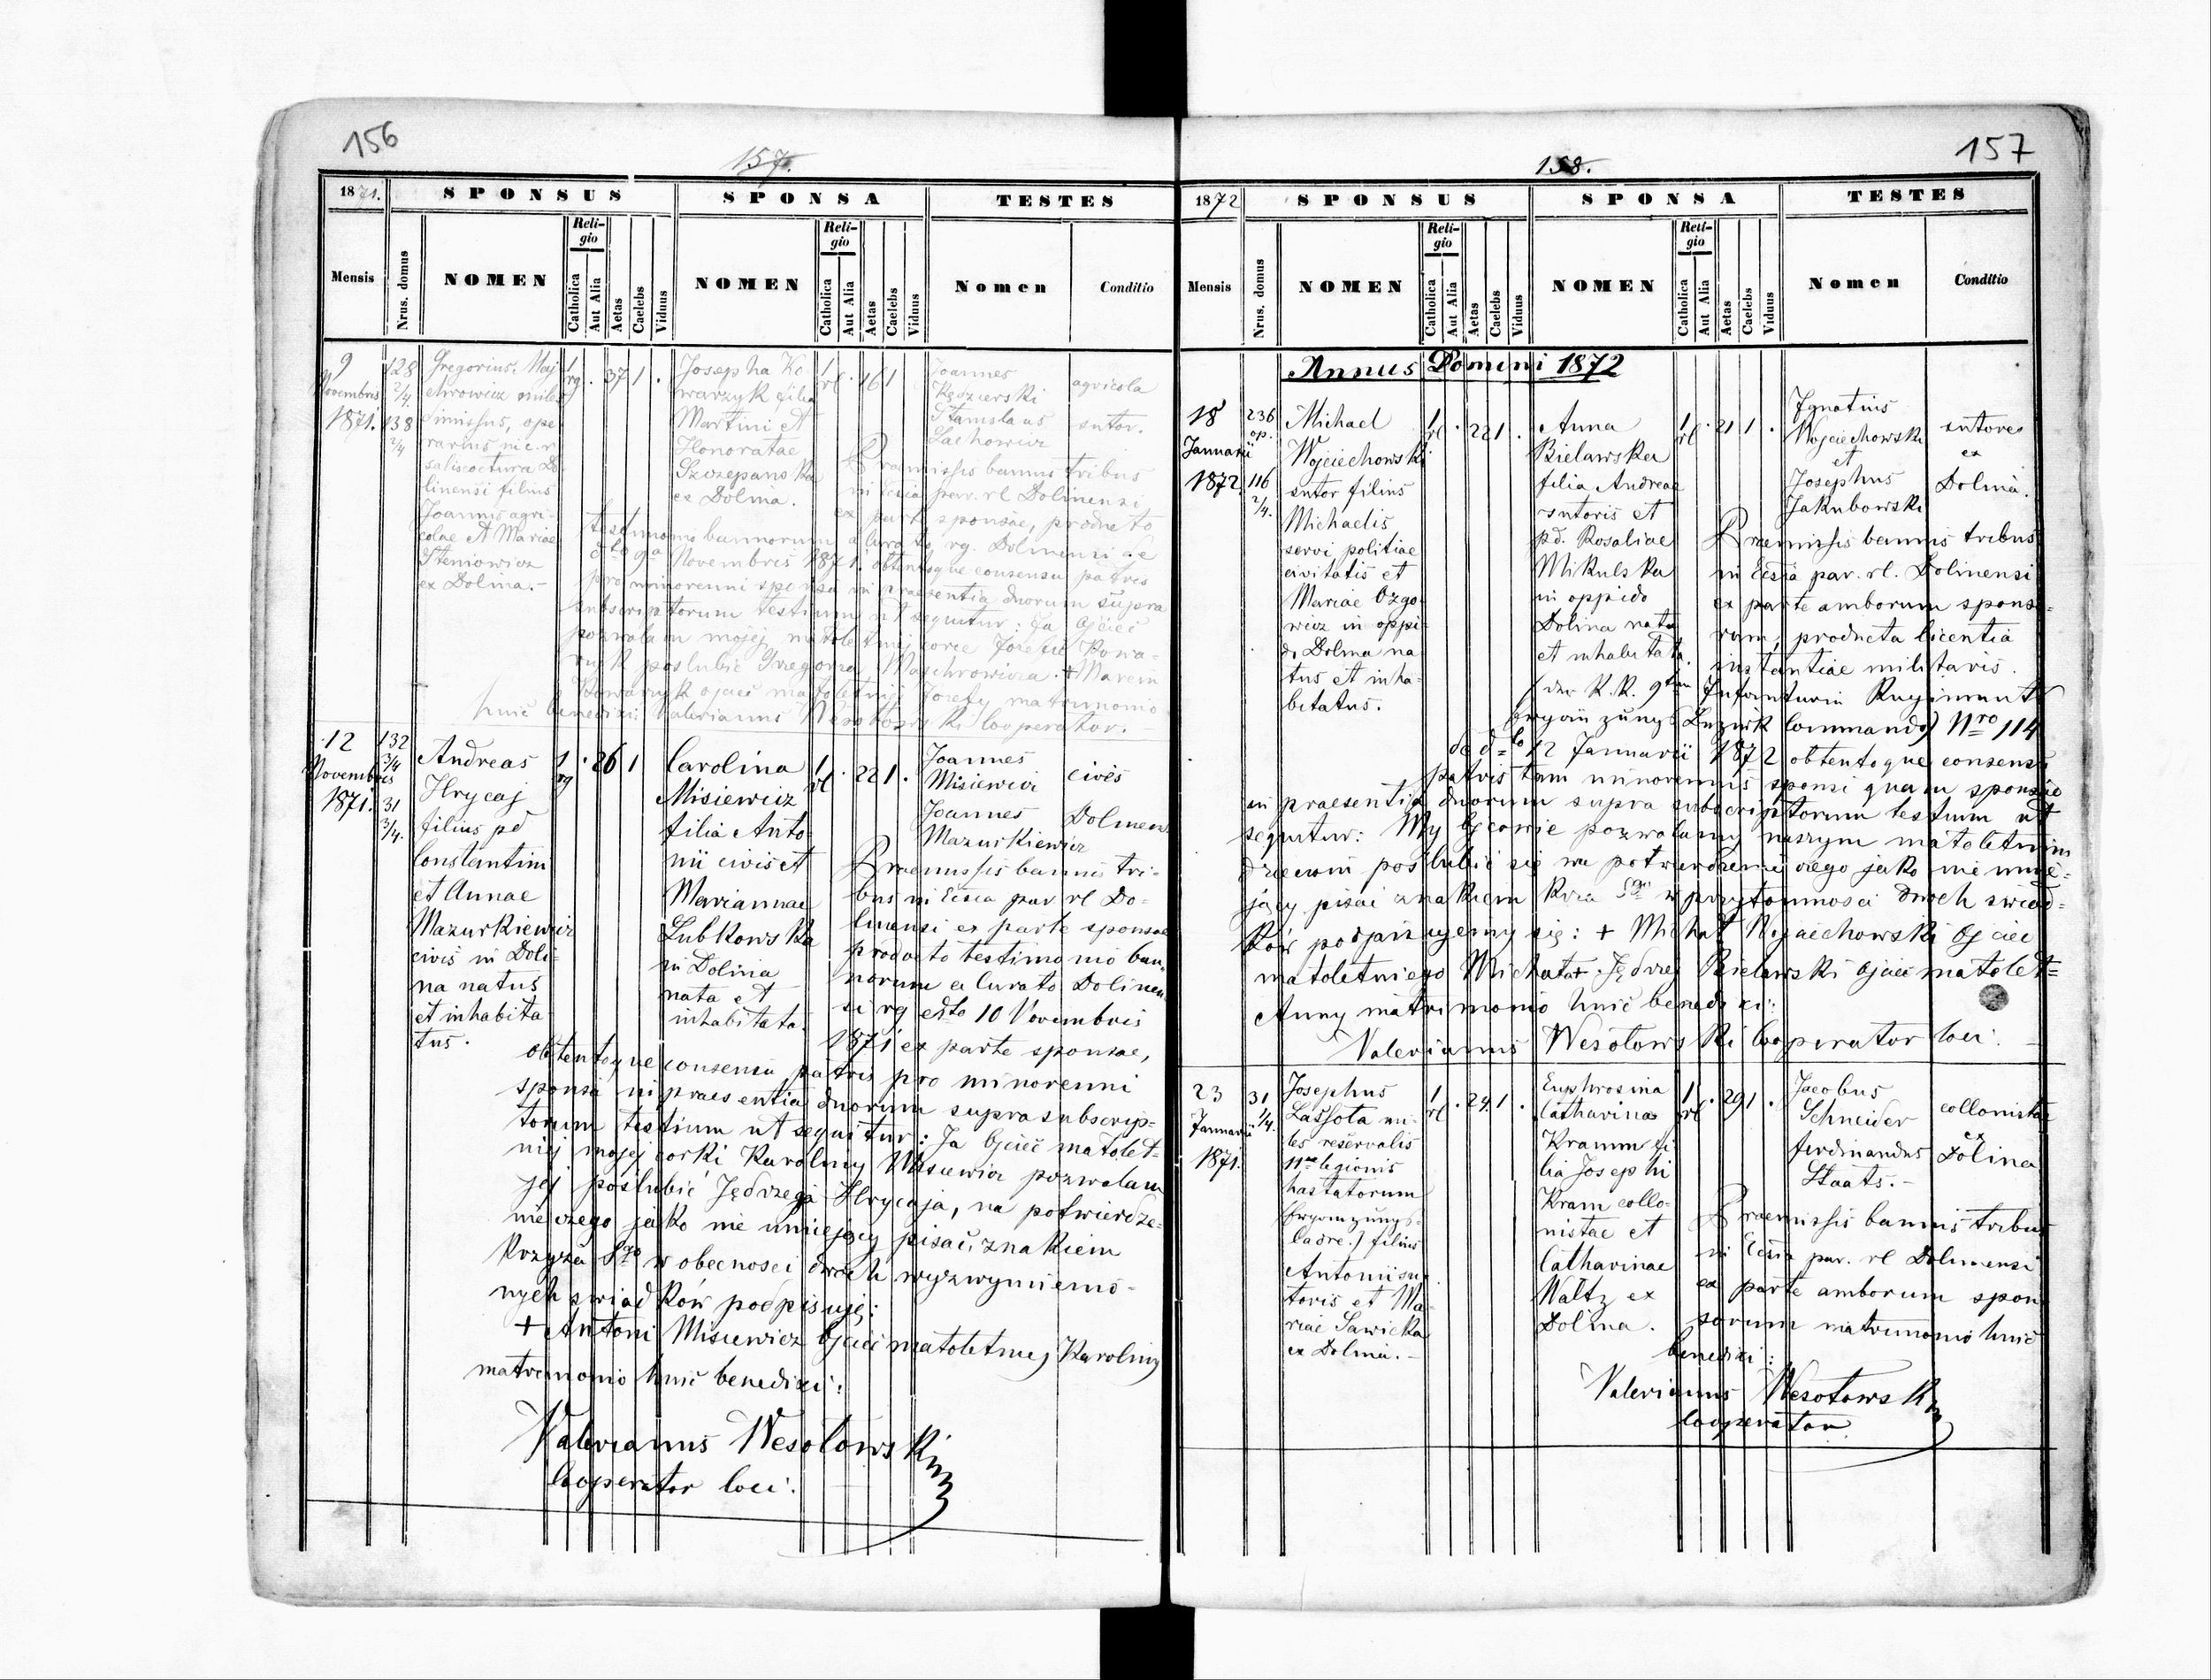 156
157.
1871.
SPONSUS
SPONSA
TESTES
Mensis
Nrus. domus
NOMEN
Religio
Catholica
Aut Alia
Aetas
Caelebs
Viduus
NOMEN
Religio
Catholica
Aut Alia
Aetas
Caelebs
Viduus
Nomen
Conditio
9
Novembris
1871.
128
2/4.
138
2/4
Gregorius
miles
dimissus, ope-
rarius
salis coctura Do-
linensi filius
Joannis agri-
colae et Mariae
Steniowicz
ex Dolina.-
1
rg
.
37
1
.
Josepha Ko-
warzyk filia
Martini et
Honoratae
Szczepanska
ex Dolina.
1
rl
.
16
1
Joannes
Kędzierski
Stanislaus
Lachowicz
agricola
sutor.
Praemissis bannis tribus
in Ecclsia par. rl Dolinensi
ex parte sponsae, producto
testimonio bannorum a Curato rg. Dolinensi de
dto 9a Novembris 1871. obtentoque consensu patris
pro minorenni sponsa in praesentia duorum supra
subscriptorum testium ut sequitur: Ja Ojciec
pozwalam mojej małoletniej córce Józefie Kowa-
rzyk poślubić Grzegorza
Kowarzyk ojciec małoletniej Józefy matrimonio
huic benedixi Valerianus Wesołowski Cooperator.
12
Novembris
1871.
132
3/4
31
3/4.
Andreas
Hrycaj
filius pd
Constantini
et Annae
Mazurkiewicz
civis in Doli-
na natus
et inhabita-
tus.
1
rg
.
26
1
Carolina
Misiewicz
filia Anto-
nii civis et
Mariannae
Lubkowska
in Dolina
nata et
inhabitata.
1
rl
.
22
1
.
Joannes
Misiewicz
Joannes
Mazurkiewicz
cives
Dolinens.
Praemissis bannis tri-
bus in Ecclsia par rl Do-
linensi ex parte sponsae
producto testimonio ban-
norum a Curato Dolinen-
si rg ddto 10 Novembris
1871 ex parte sponsae,
obtentoque consensu patris pro minorenni
sponsa in praesentia duorum supra subscrip-
torum testium ut sequitur: Ja Ojciec małolet-
niej mojej córki Karoliny Misiewicz pozwalam
jej poślubić Jędrzeja Hrycaja, na potwierdze-
nie czego jako nie umiejący pisać, znakiem
Krzyża Sgo w obecności dwóch wyżwymienio-
nych świadków podpisuję:
+ Antoni Misiewicz Ojciec małoletniej Karoliny
matrimonio huic benedixi:
Valerianus Wesołowski
Cooperator loci:
157
158.
1872
SPONSUS
SPONSA
TESTES
Mensis
Nrus. domus
NOMEN
Religio
Catholica
Aut Alia
Aetas
Caelebs
Viduus
NOMEN
Religio
Catholica
Aut Alia
Aetas
Caelebs
Viduus
Nomen
Conditio
Annus Domini 1872
18
Januarii
1872.
236
op.
116
2/4.
Michael
Wojciechowski
sutor filius
Michaelis
servi politiae
civitatis et
Mariae Ozgo-
wicz in oppi-
do Dolina na-
tus et inha-
bitatus.
1
rl
.
22
1
.
Anna
Bielawska
filia Andreae
sutoris et
pd. Rosaliae
Mikulska
in oppido
Dolina nata
et inhabitata.
1
rl
.
21
1
.
Ignatius
Wojciechowski
et
Josephus
Jakubowski
sutores
ex
Dolina.
Praemissis bannis tribus
in Ecclsia par. rl. Dolinensi
ex parte amborum sponso-
rum, producta licentia
instantiae militaris.
(der K.K. 9ten Infanterie Regiment
Ergänzungs Bezirk Commando) Nro 114
de dto 12 Januarii 1872 obtentoque consensu
patris tam minorennis sponsi quam sponsae
in praesentia duorum supra subscriptorum testium ut
sequitur: My Ojcowie pozwalamy naszym małoletnim
dzieciom poślubić się na potwierdzenie czego jako nie umie-
jący pisać znakiem Krzyża Sgo w przytomności dwóch świad-
ków podpisujemy się: + Michał Wojciechowski Ojciec
małoletniego Michała + Jędrzej Bielawski Ojciec małolet-
Anny matrimonio huic benedixi:
Valerianus Wesołowski Cooperator loci:
23
Januarii
1871.
31
1/4.
Josephus
Lassota mi-
les reservalis
11ae legionis
hastatorum
(Ergänzungs-
Cadre.) filius
Antonii su-
toris et Ma-
riae Sawicka
ex Dolina.-
1
rl
.
24
1
.
Euphrosina
Catharina
Kramm fi-
lia Josephi
Kram collo-
nistae et
Catharinae
Waltz ex
Dolina.
1
rl
.
29
1
.
Jacobus
Schneider
Ferdinandus
Staats.-
collonistae
ex
Dolina
Praemissis bannis tribus
in Ecclsia par. rl Dolinensi
ex parte amborum spon-
sorum matrimonio huic
benedixi:
Valerianus Wesołowski
Cooperator